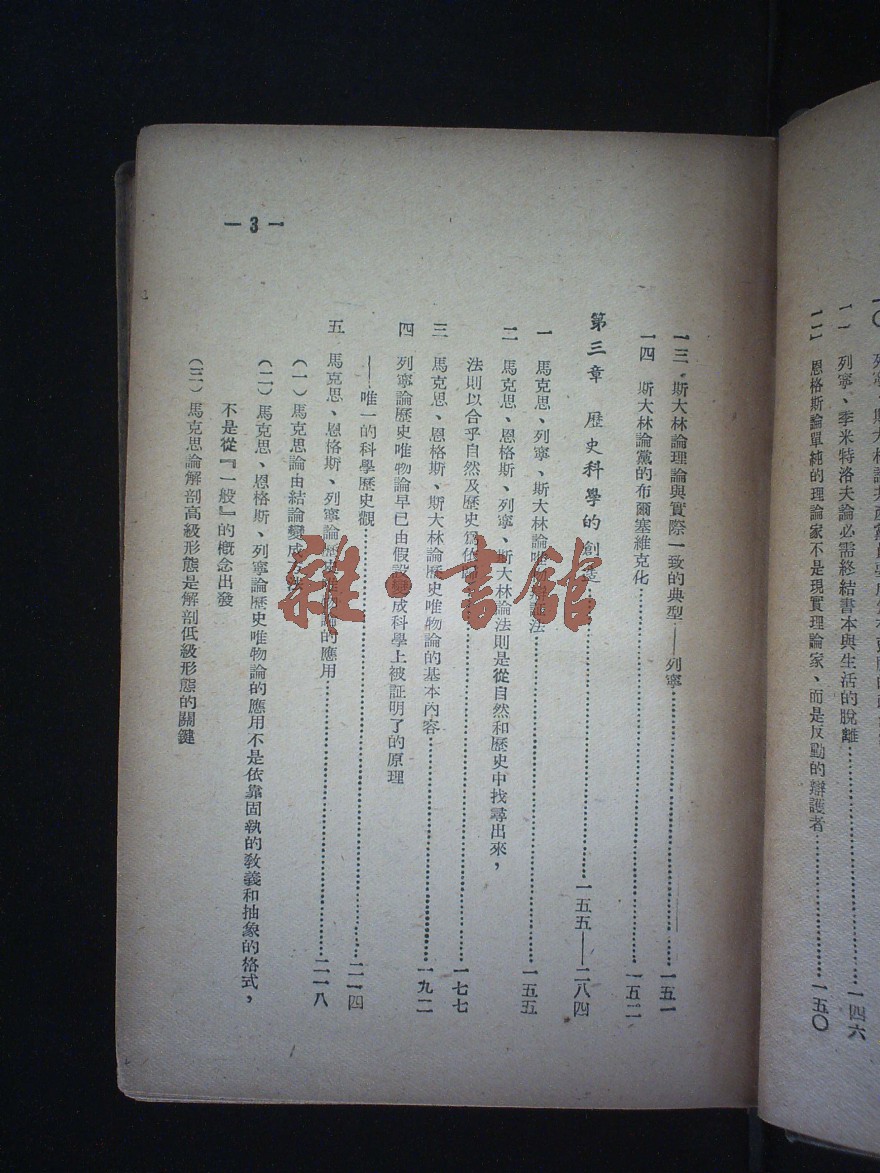 一〇
一一 列寧、季米特洛夫論必需終結書本與生活的脫離……一四六
一二 恩格斯論單純的理論家不是現實理論家、而是反動的辯護者……一五〇
— 3 —
一三 斯大林論理論與實際一致的典型——列寧……一五一
一四 斯大林論黨的布爾塞維克化……一五二
第三章 歷史科學的創造……一五五——二八四
一 馬克思、列寧、斯大林論唯法……一五五
二 馬克思、恩格斯、列寧、斯大林論法則是從自然和歷史中找尋出來，
法則以合乎自然及歷史爲依……一七七
三 馬克思、恩格斯、斯大林論歷史唯物論的基本內容……一九二
四 列寧論歷史唯物論早已由假設變成科學上被証明了的原理
——唯一的科學歷史觀……二一四
五 馬克思、恩格斯、列寧論歷史唯物論的應用……二一八
（一）馬克思論由結論變成方法
（二）馬克思、恩格斯、列寧論歷史唯物論的應用不是依靠固執的教義和抽象的格式，
不是從『一般』的概念出發
（三）馬克思論解剖高級形態是解剖低級形態的關鍵
雜·書館